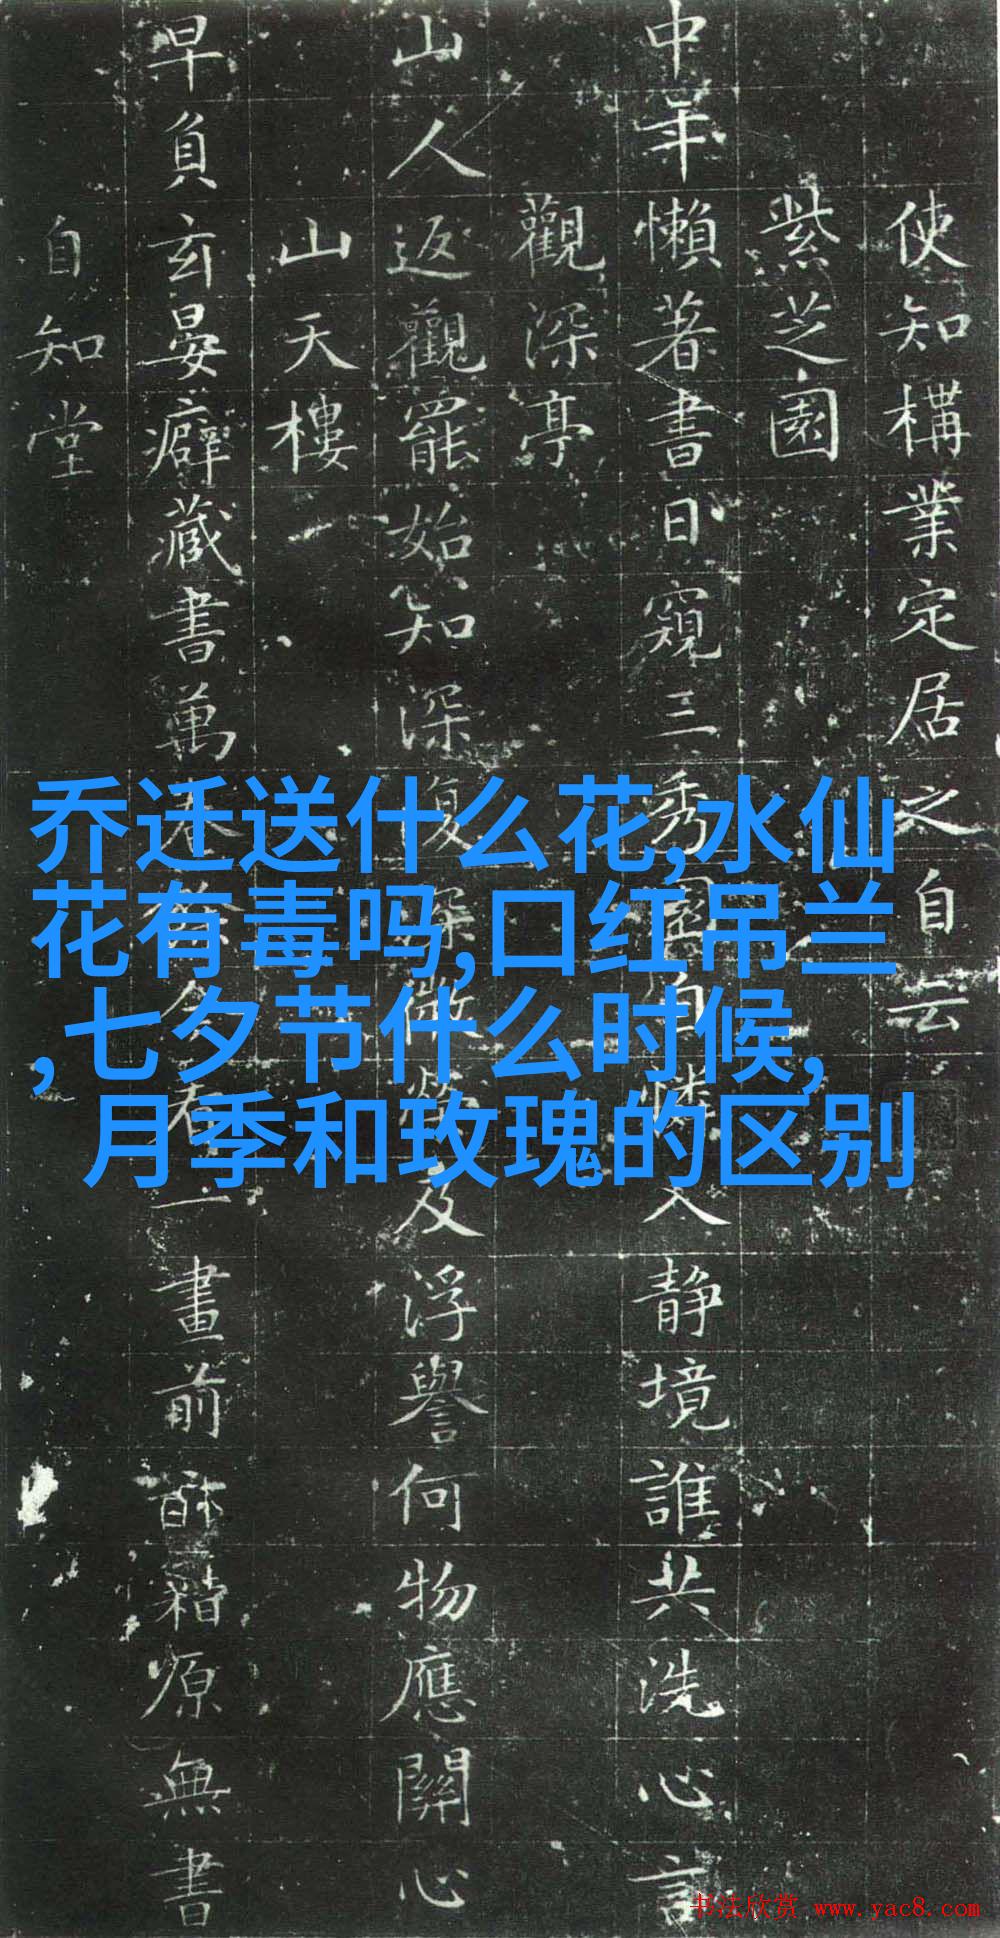 使知構業定居之自云
紫芝園
中年懶著書日窺三秀
入靜境誰共洗心言
觀深亭
山人返觀罷始知深復深微
及浮譽何物應關心
山天樓
早負玄晏癖藏書萬卷
一畫前
籍原無書
自知堂
乔迁送什么花,水仙
花有毒吗,口红吊兰
,七夕节什么时候,
月季和玫瑰的区别
书法欣赏 www.yac8.com